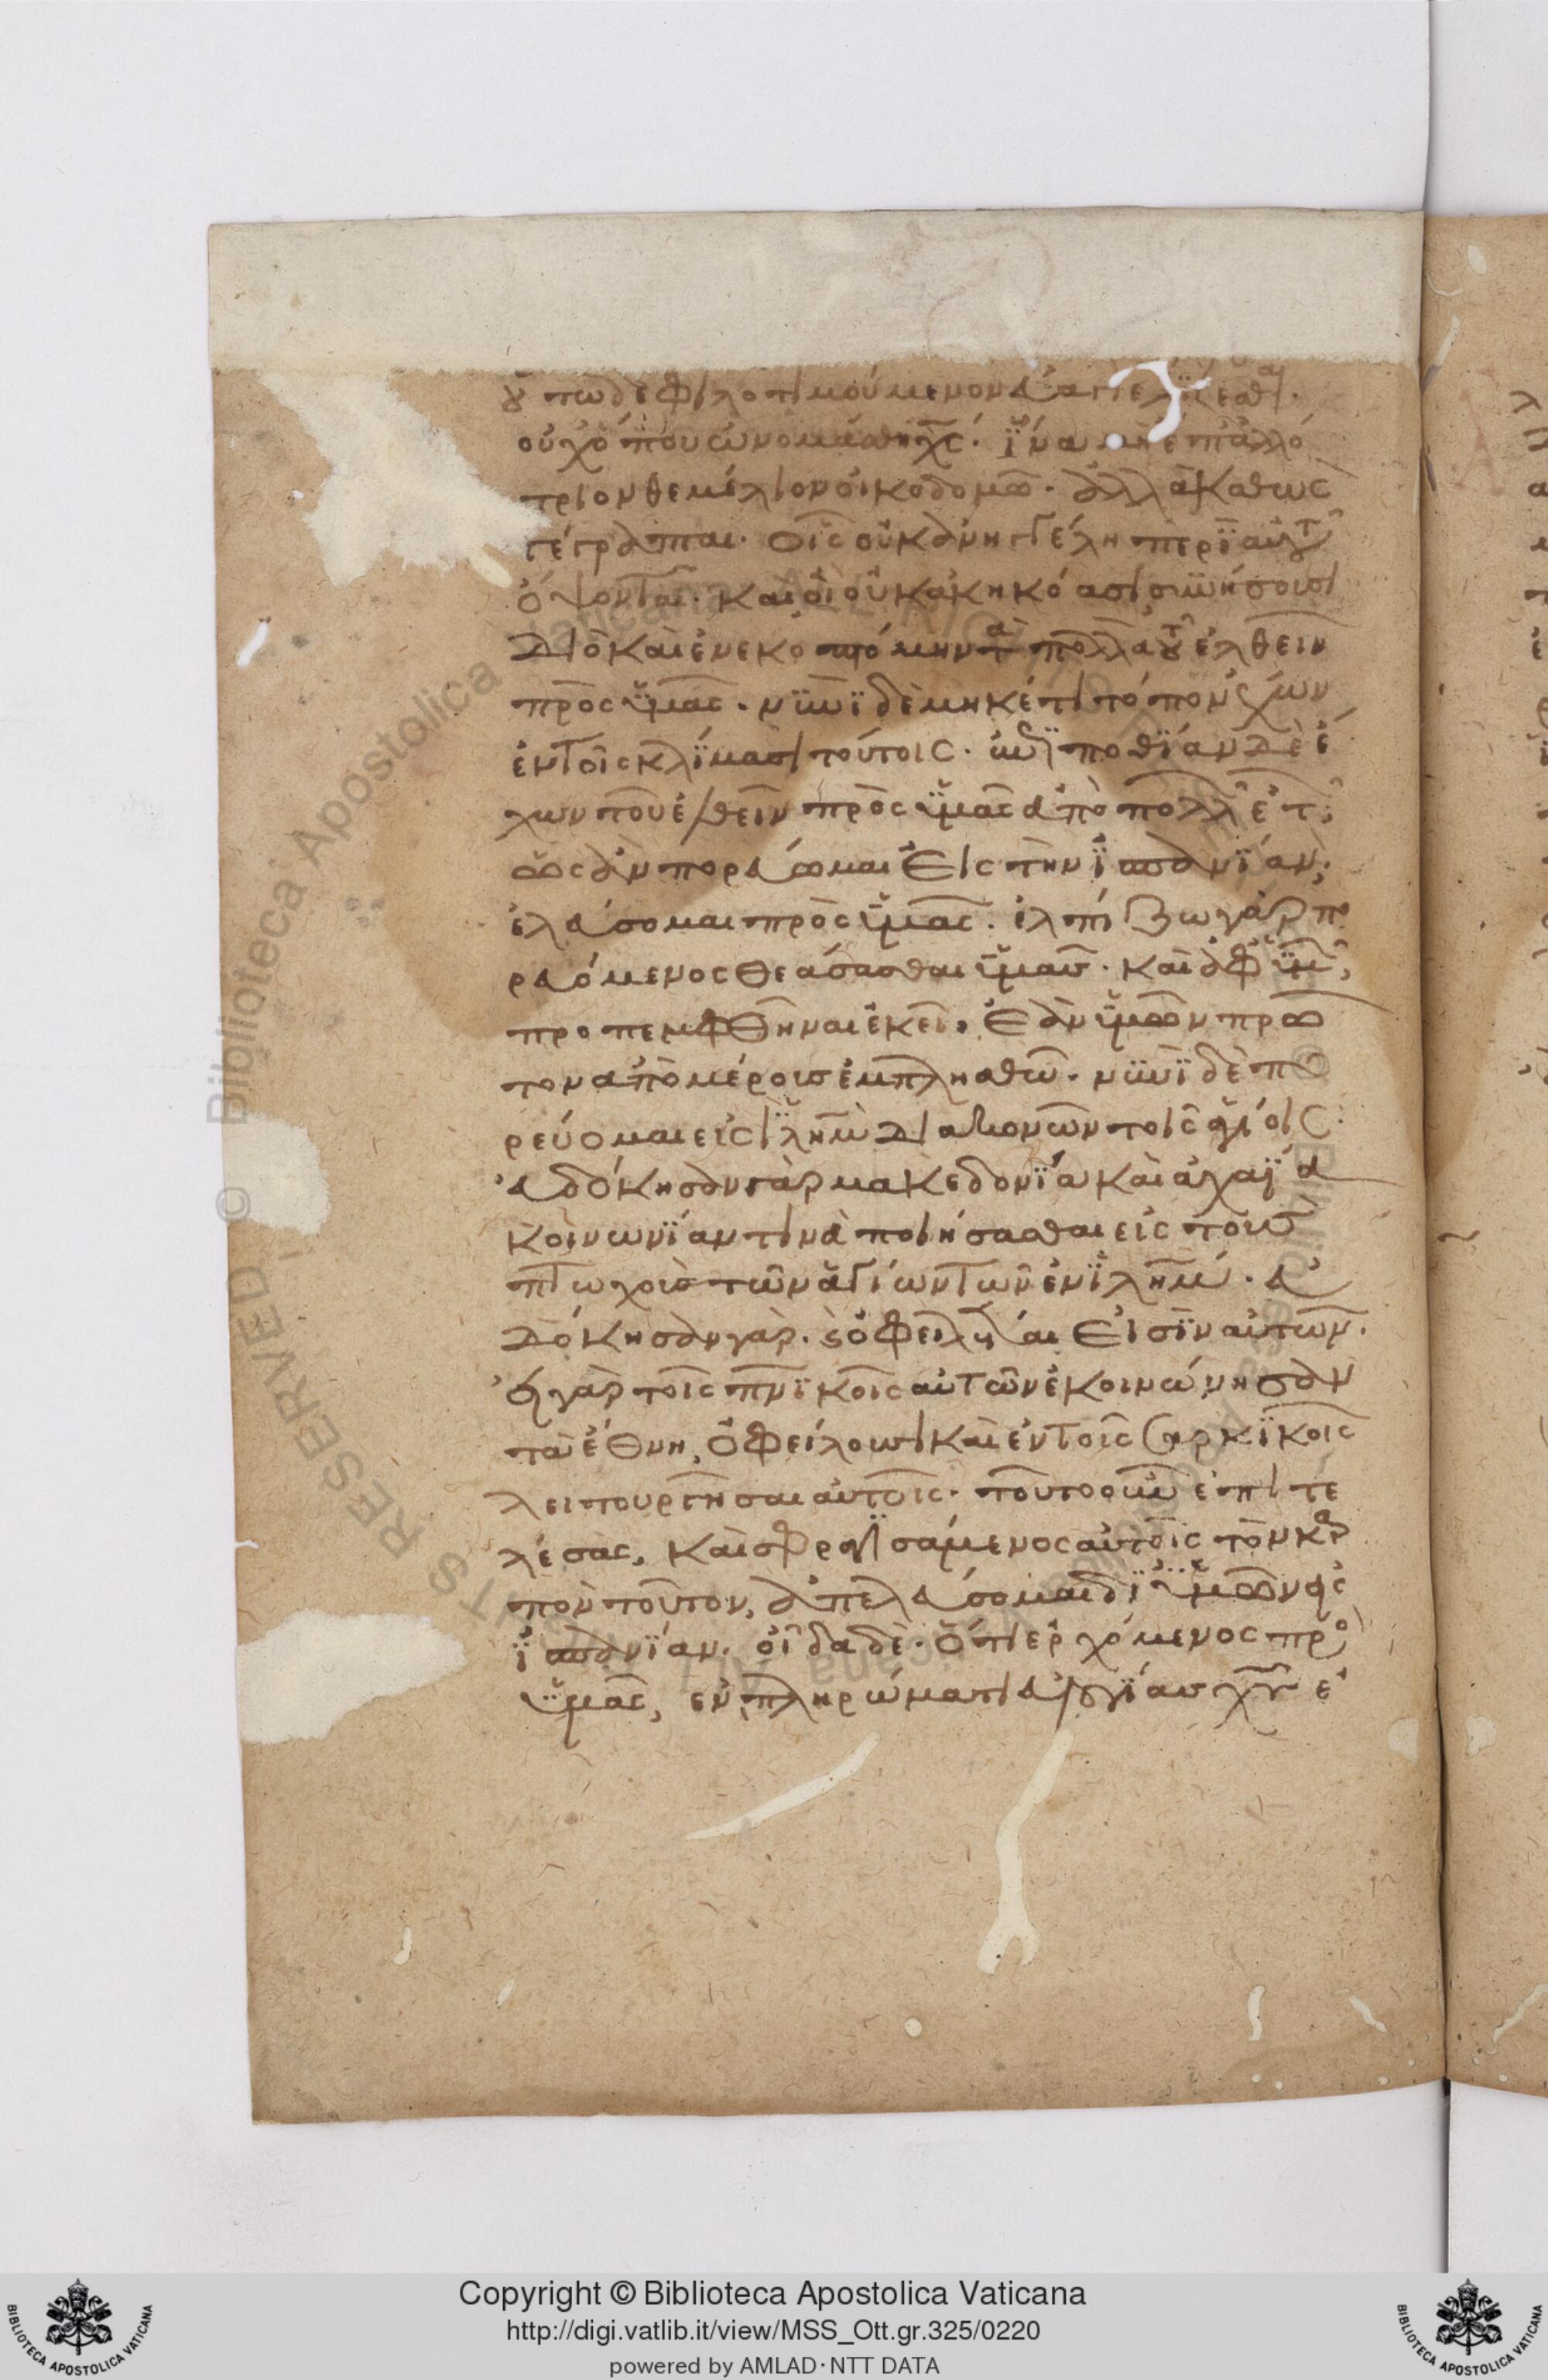 ȣ̈τωδεφιλοτιμούμενονεὐαγγελίζεσθαι.
οὐχὅπουὠνομάσθηχς̅. ἵ̈ναμὴἐπἀλλό
τριονθεμέλιονοἰκοδομῶ. ἀλλὰκαθὼς
γέγραπται. οἷςοὐκἀνηγγέλη περῒαὐτοῦ
ὄψονται. καὶοἳοὐκἀκηκόασισυνήσουσι
Διὸκαὶἐνεκοπτόμηντὰ πολλὰτοῦἐλθεῖν
πρὸςὑ̈μᾶς. νυνῒδὲμηκέτιτόπονἔχων
ἐντοῖςκλΐμασιτούτοις. ἐπϊποθΐανδὲἔ
χωντοῦἐλθεῖν πρὸςὑ̈μᾶςἀπὸ πολλῶνἐτῶν
ὡςἂνπορεύωμαιεἰςτὴνἰ̈σπανΐαν,
ἐλεύσομαιπρὸςὑ̈μᾶς. ἐλπίζωγὰρπο
ρευόμενοςθεάσασθαιὑ̈μᾶσ. καὶἀφὑ̈μῶν,
προπεμφθῆναιἐκεῖ. ἐὰνὑ̈μῶνπρῶ
τοναπὸμέρουσἐμπλησθῶ. νυνῒδὲπο
ρεύομαιεἰςἰ̈λημ̅διακονῶντοῖςἁγίοις.
εὐδόκησανγὰρμακεδονΐακαὶἀχαΐα
κοινωνΐαντινὰποιήσασθαιεἰςτοὺσ
πτωχοὺστῶνἁγίωντῶνἐνἰ̈λημ̅. εὐ
δόκησανγὰρ. ϛὀφειλέταιεἰσῒναὐτῶν.
εἰγὰρτοῖςπν̅ϊκοῖςαὐτῶνἐκοινώνησαν
τὰἔθνη, ὀφείλουσικαὶἐντοῖςσαρκϊκοῖς
λειτουργῆσαιαὐτοῖς. τοῦτοοὖνἐπιτε
λέσας, καὶσφραγϊσάμενοςαὐτοῖςτὸνκαρ
πὸντοῦτον, ἀπελεύσομαιδϊὑ̈μῶνεἰς
ἰ̈σπανΐαν. οἶδαδὲ. ὅτιερχόμενοςπρὸς
ὑ̈μᾶς, ενπληρώματιεὐλογΐασχυ̅ἐ